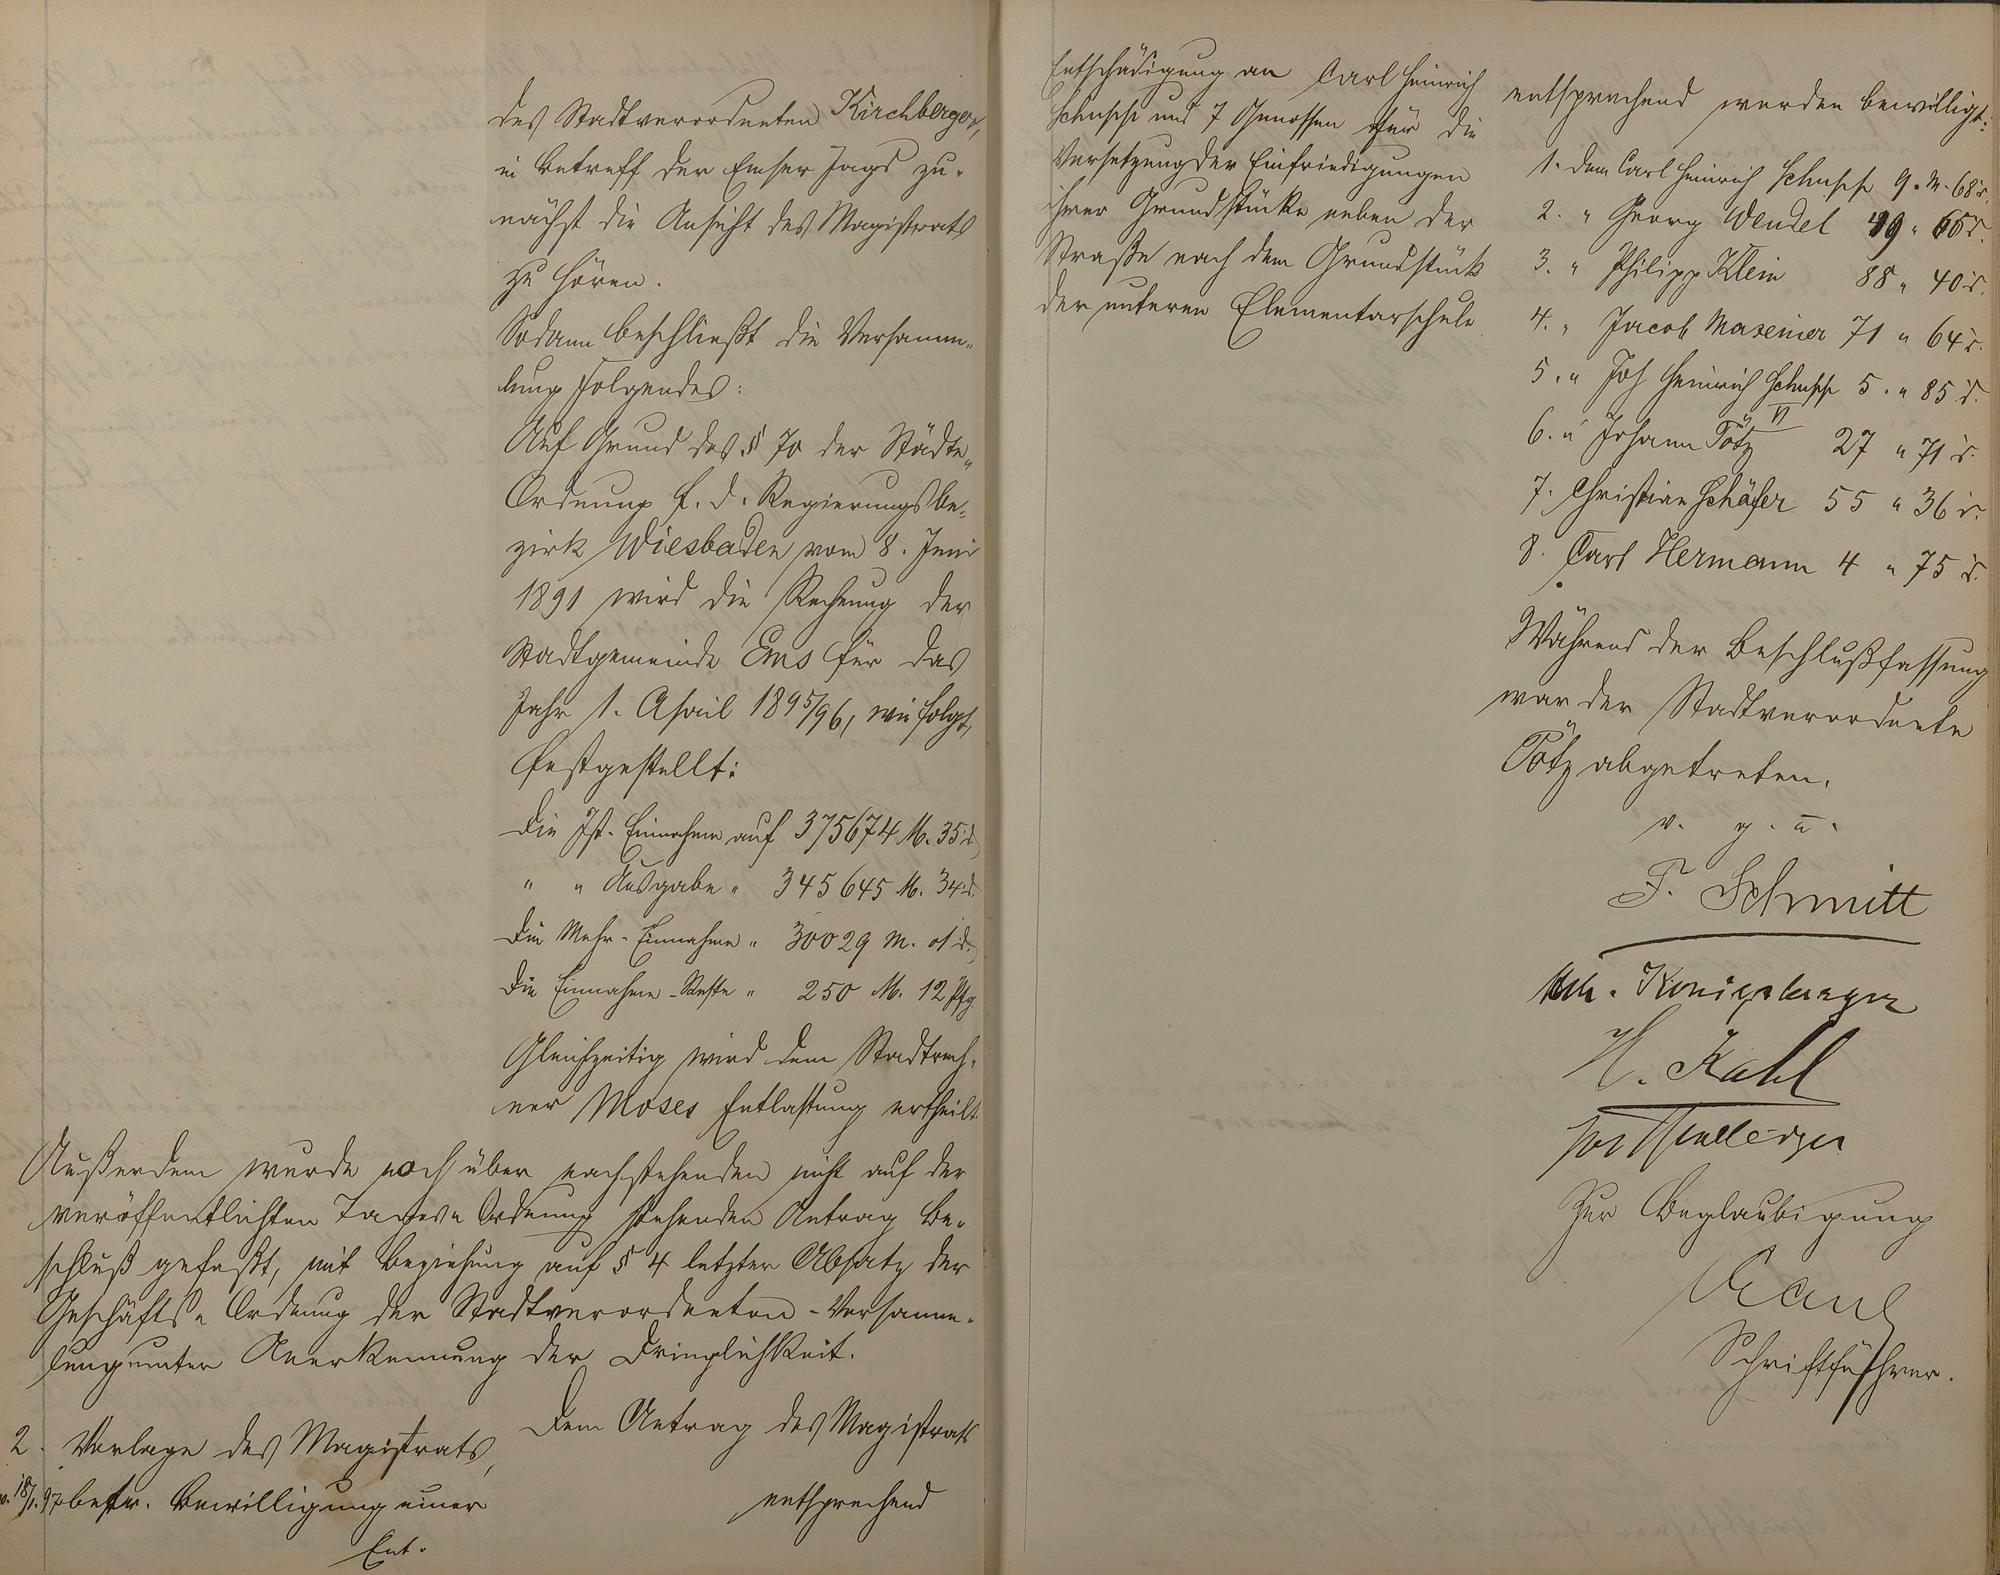 des Stadtverordneten Kirchberger,
in Betreff der Emser Jagd zu-
nächst die Ansicht des Magistrats
zu hören.
Sodann beschließt die Versamm-
lung folgendes:
Auf Grund des § 70 der Städte-
Ordnung f. d. Regierungsbe-
zirk Wiesbaden vom 8. Juni
1891 wird die Rechnung der
Stadtgemeinde Ems für das
Jahr 1. April 1895/96, wie folgt,
festgestellt:
Die Ist-Einnahme auf 375674 M. 35 d.
" " Ausgabe " 345645 M. 34 d.
Die Mehr-Einnahme " 30029 M. 01 d.
Die Einnahme-Reste " 250 M. 12 Pfg.
Gleichzeitig wird dem Stadtrech-
ner Moses Entlastung ertheilt.
Außerdem wurde noch über nachstehenden nicht auf der
veröffentlichten Tages-Ordnung stehenden Antrag Be-
schluß gefaßt, mit Beziehung auf § 4 letzter Absatz der
Geschäfts-Ordnung der Stadtverordneten-Versamm-
lung unter Anerkennung der Dringlichkeit.
2. Vorlage des Magistrats,
v. 18/1. 97 betr. Bewilligung einer
Ent-
Dem Antrag des Magistrats
entsprechend
Entschädigung an Carl Heinrich
Schupp und 7 Genossen für die
Versetzung der Einfriedigungen
ihrer Grundstücke neben der
Straße nach dem Grundstück
der unteren Elementarschule
entsprechend werden bewilligt:
1. dem Carl Heinrich Schupp 9. M. 68 d.
2. " Georg Wendel 49 " 65 d.
3. " Philipp Klein 88 " 40 d.
4. " Jacob 71 " 64 d.
5. " Joh Heinrich Schupp 5. " 85 d.
6. " Johann Pötz VI 27 " 71 d.
7. Christian Schäfer 55 " 36 d.
8. Carl Hermann 4 " 75 d.
Während der Beschlußfassung
war der Stadtverordnete
Pötz abgetreten.
v. g. u.
F. Schmitt
Königsberger
H. Kahl
Zur Beglaubigung
Schriftführer.